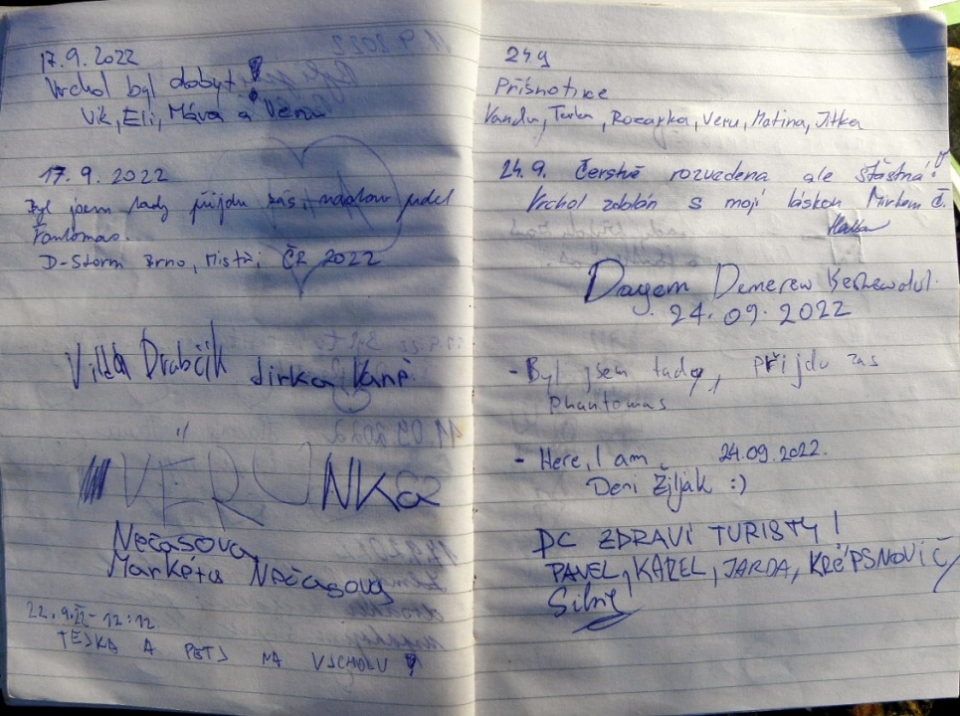 17.9.2022
Vrchol byl dobyt!
Vik, Eli, Máva a Věra
17.9.2022
Byl jsem tady přijdu zas,
Fantomas.
D-Storm Brno, Mistři ČR 2022
Drabčik Jirka
VERUNKa
Nečasova
Markéta Nečasova
22.9. - 12:12
A NA
249
Vandu, Terka, Rozarka, Veru, Matina, Jitka
24.9. Čerstvě rozvedena ale šťastná!
Vrchol zdolán s mojí láskou Mirkem Č.
Dagem Demerew
24.09.2022
- Byl jsem tady, přijdu zas
Phantomas
- Here, I am, 24.09.2022.
Deni Žiljak :)
DC ZDRAVÍ TURISTY!
PAVEL, KAREL, JARDA,